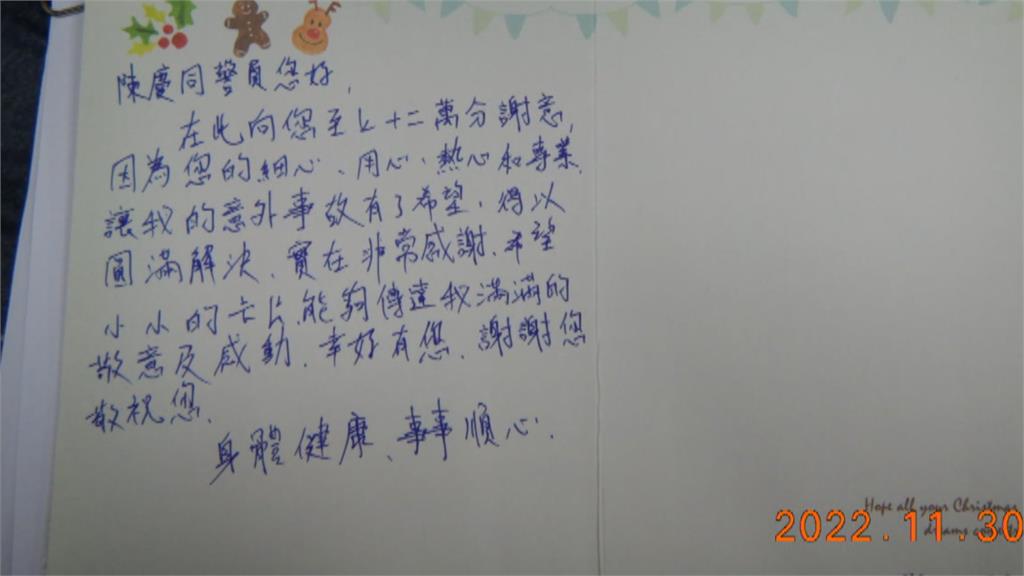 陳慶同警員您好,
在此向您至上十二萬分謝意,
因為您的細心、用心、熱心和專業,
讓我的意外事故有了希望,得以
圓滿解決、實在非常感謝、希望
小小的卡片能夠傳達我滿滿的
敬意及感動、幸好有您、謝謝您
敬祝您、
身體健康、事事順心、
Hope all your Christmas
dreams
2022.11.30